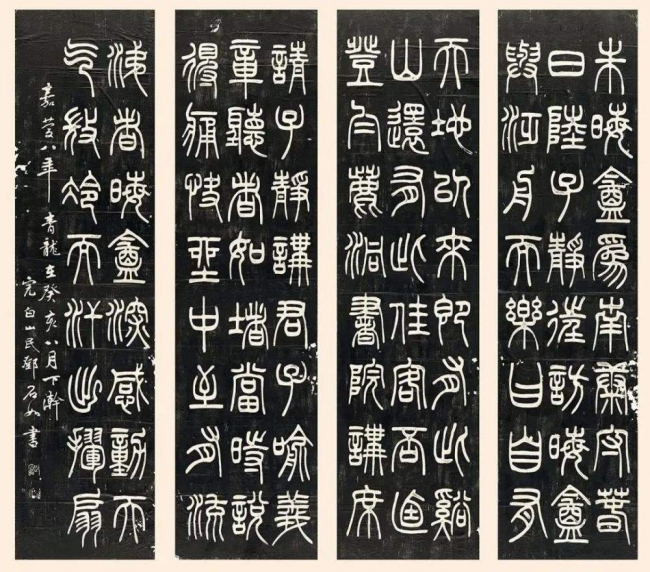 朱晦盦爲南康守萅
日陸子靜從訪晦盦
與泛舟而樂曰自有
天地以來即有此谿
山還有此佳客否迺
登白鹿洞書院講席
請子靜講君子喻義
章聽者如堵當時說
得痛快坐中至有流
涕者晦盦深感動天
气微冷而汗出揮扇
嘉慶八年青龍在癸亥八月下澣
完白山民鄧石如書